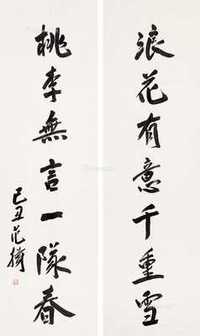 浪花有意千重雪
桃李無言一隊春
己丑范揚